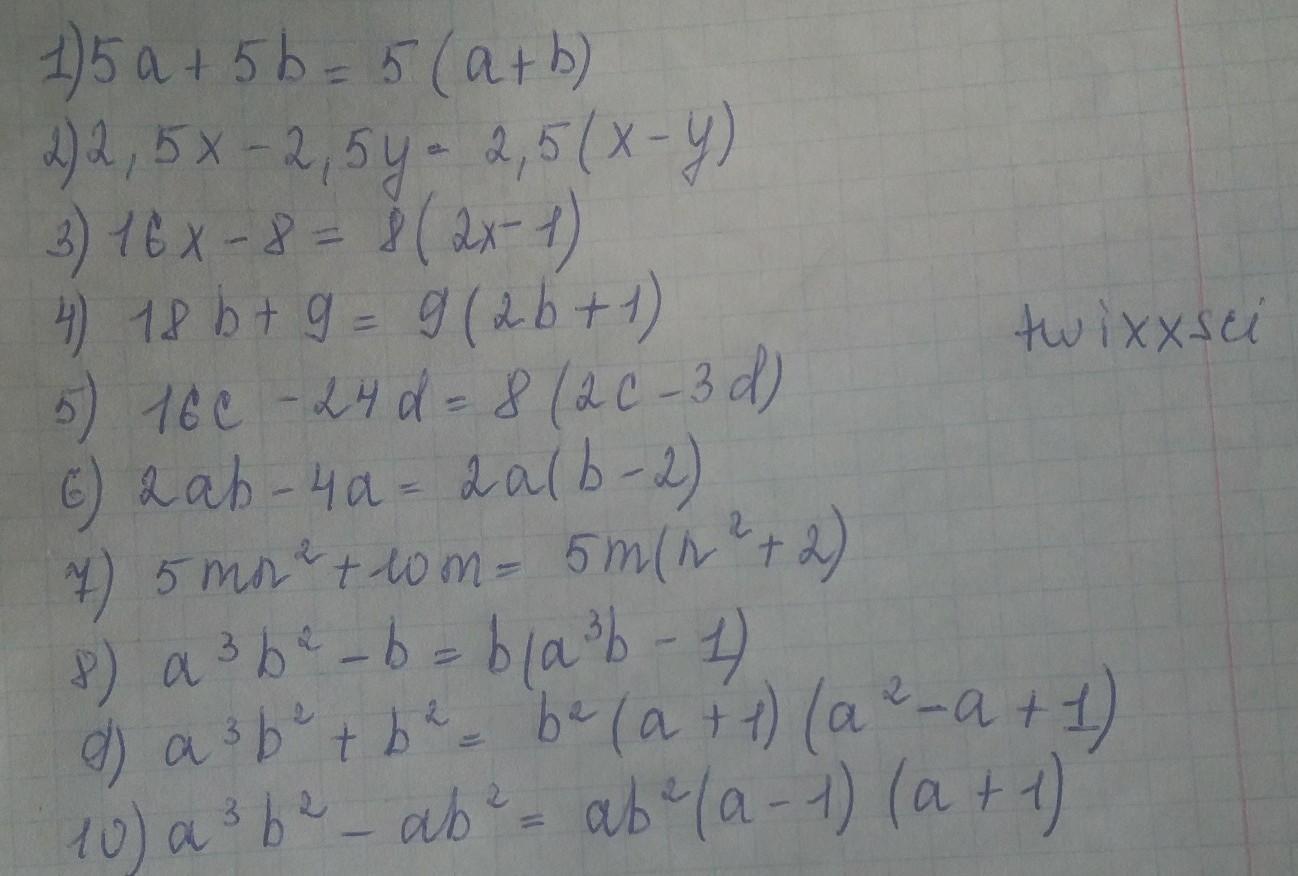 1) 5a + 5b = 5 (a+b)
2) 2,5x - 2,5y = 2,5(x - y)
3) 16x - 8 = 8(2x - 1)
4) 18b + 9 = 9(2b + 1)
twixxsci
5) 16c - 24d = 8 (2c - 3d)
6) 2ab - 4a = 2a(b - 2)
7) 5mn² + 10m = 5m(n² + 2)
8) a³b² - b = b(a³b - 1)
9) a³b² + b² = b² (a + 1) (a² - a + 1)
10) a³b² - ab² = ab² (a - 1) (a + 1)